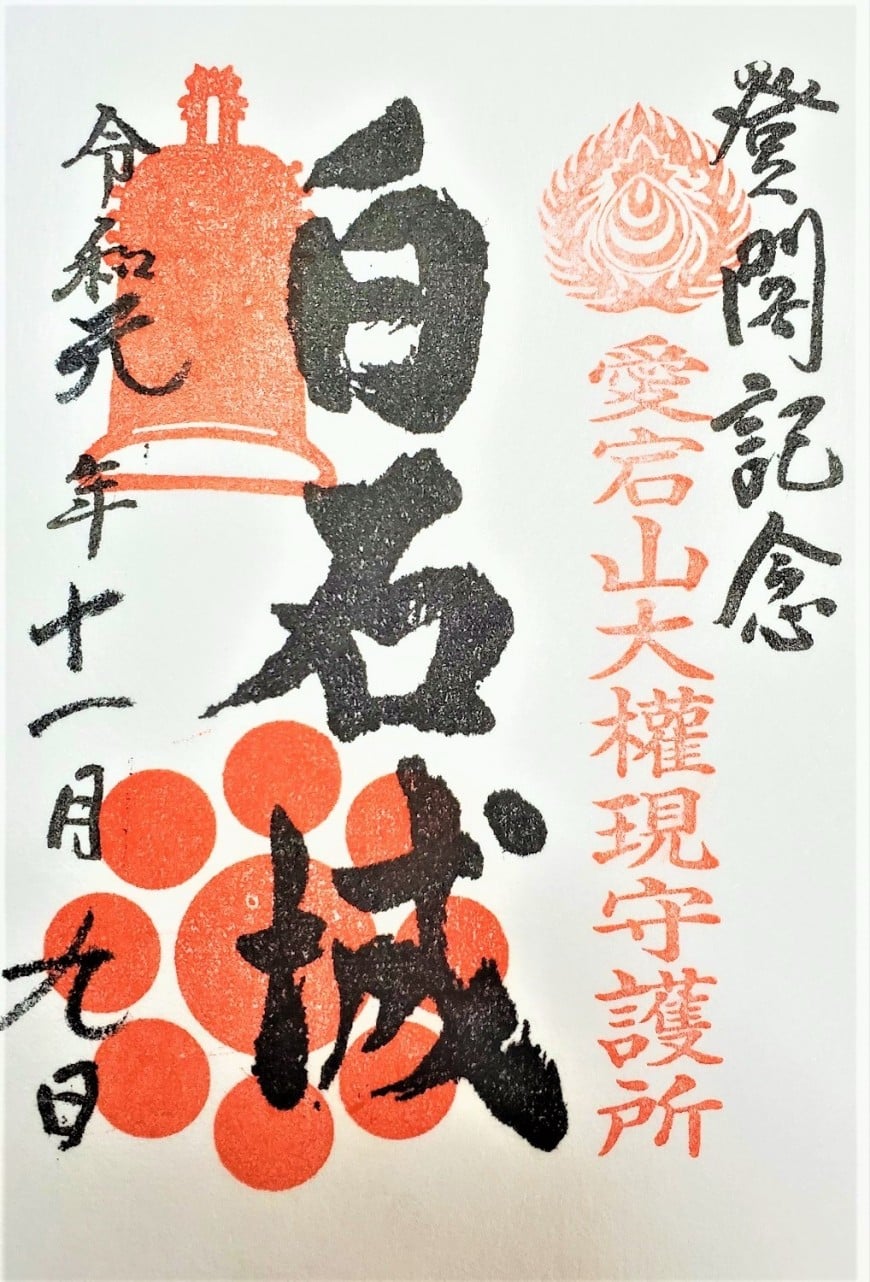 登閣記念
愛宕山大權現守護所
白石城
令和元年十一月九日